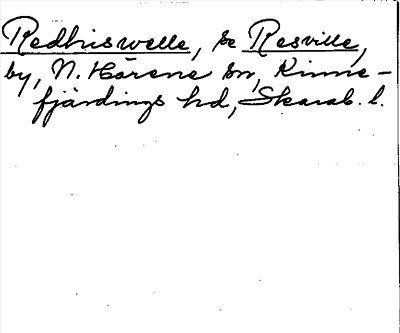 Redhiswelle, se Resville,
by, N. Härene sn, Kinne-
fjärdings hd, Skarab. l.